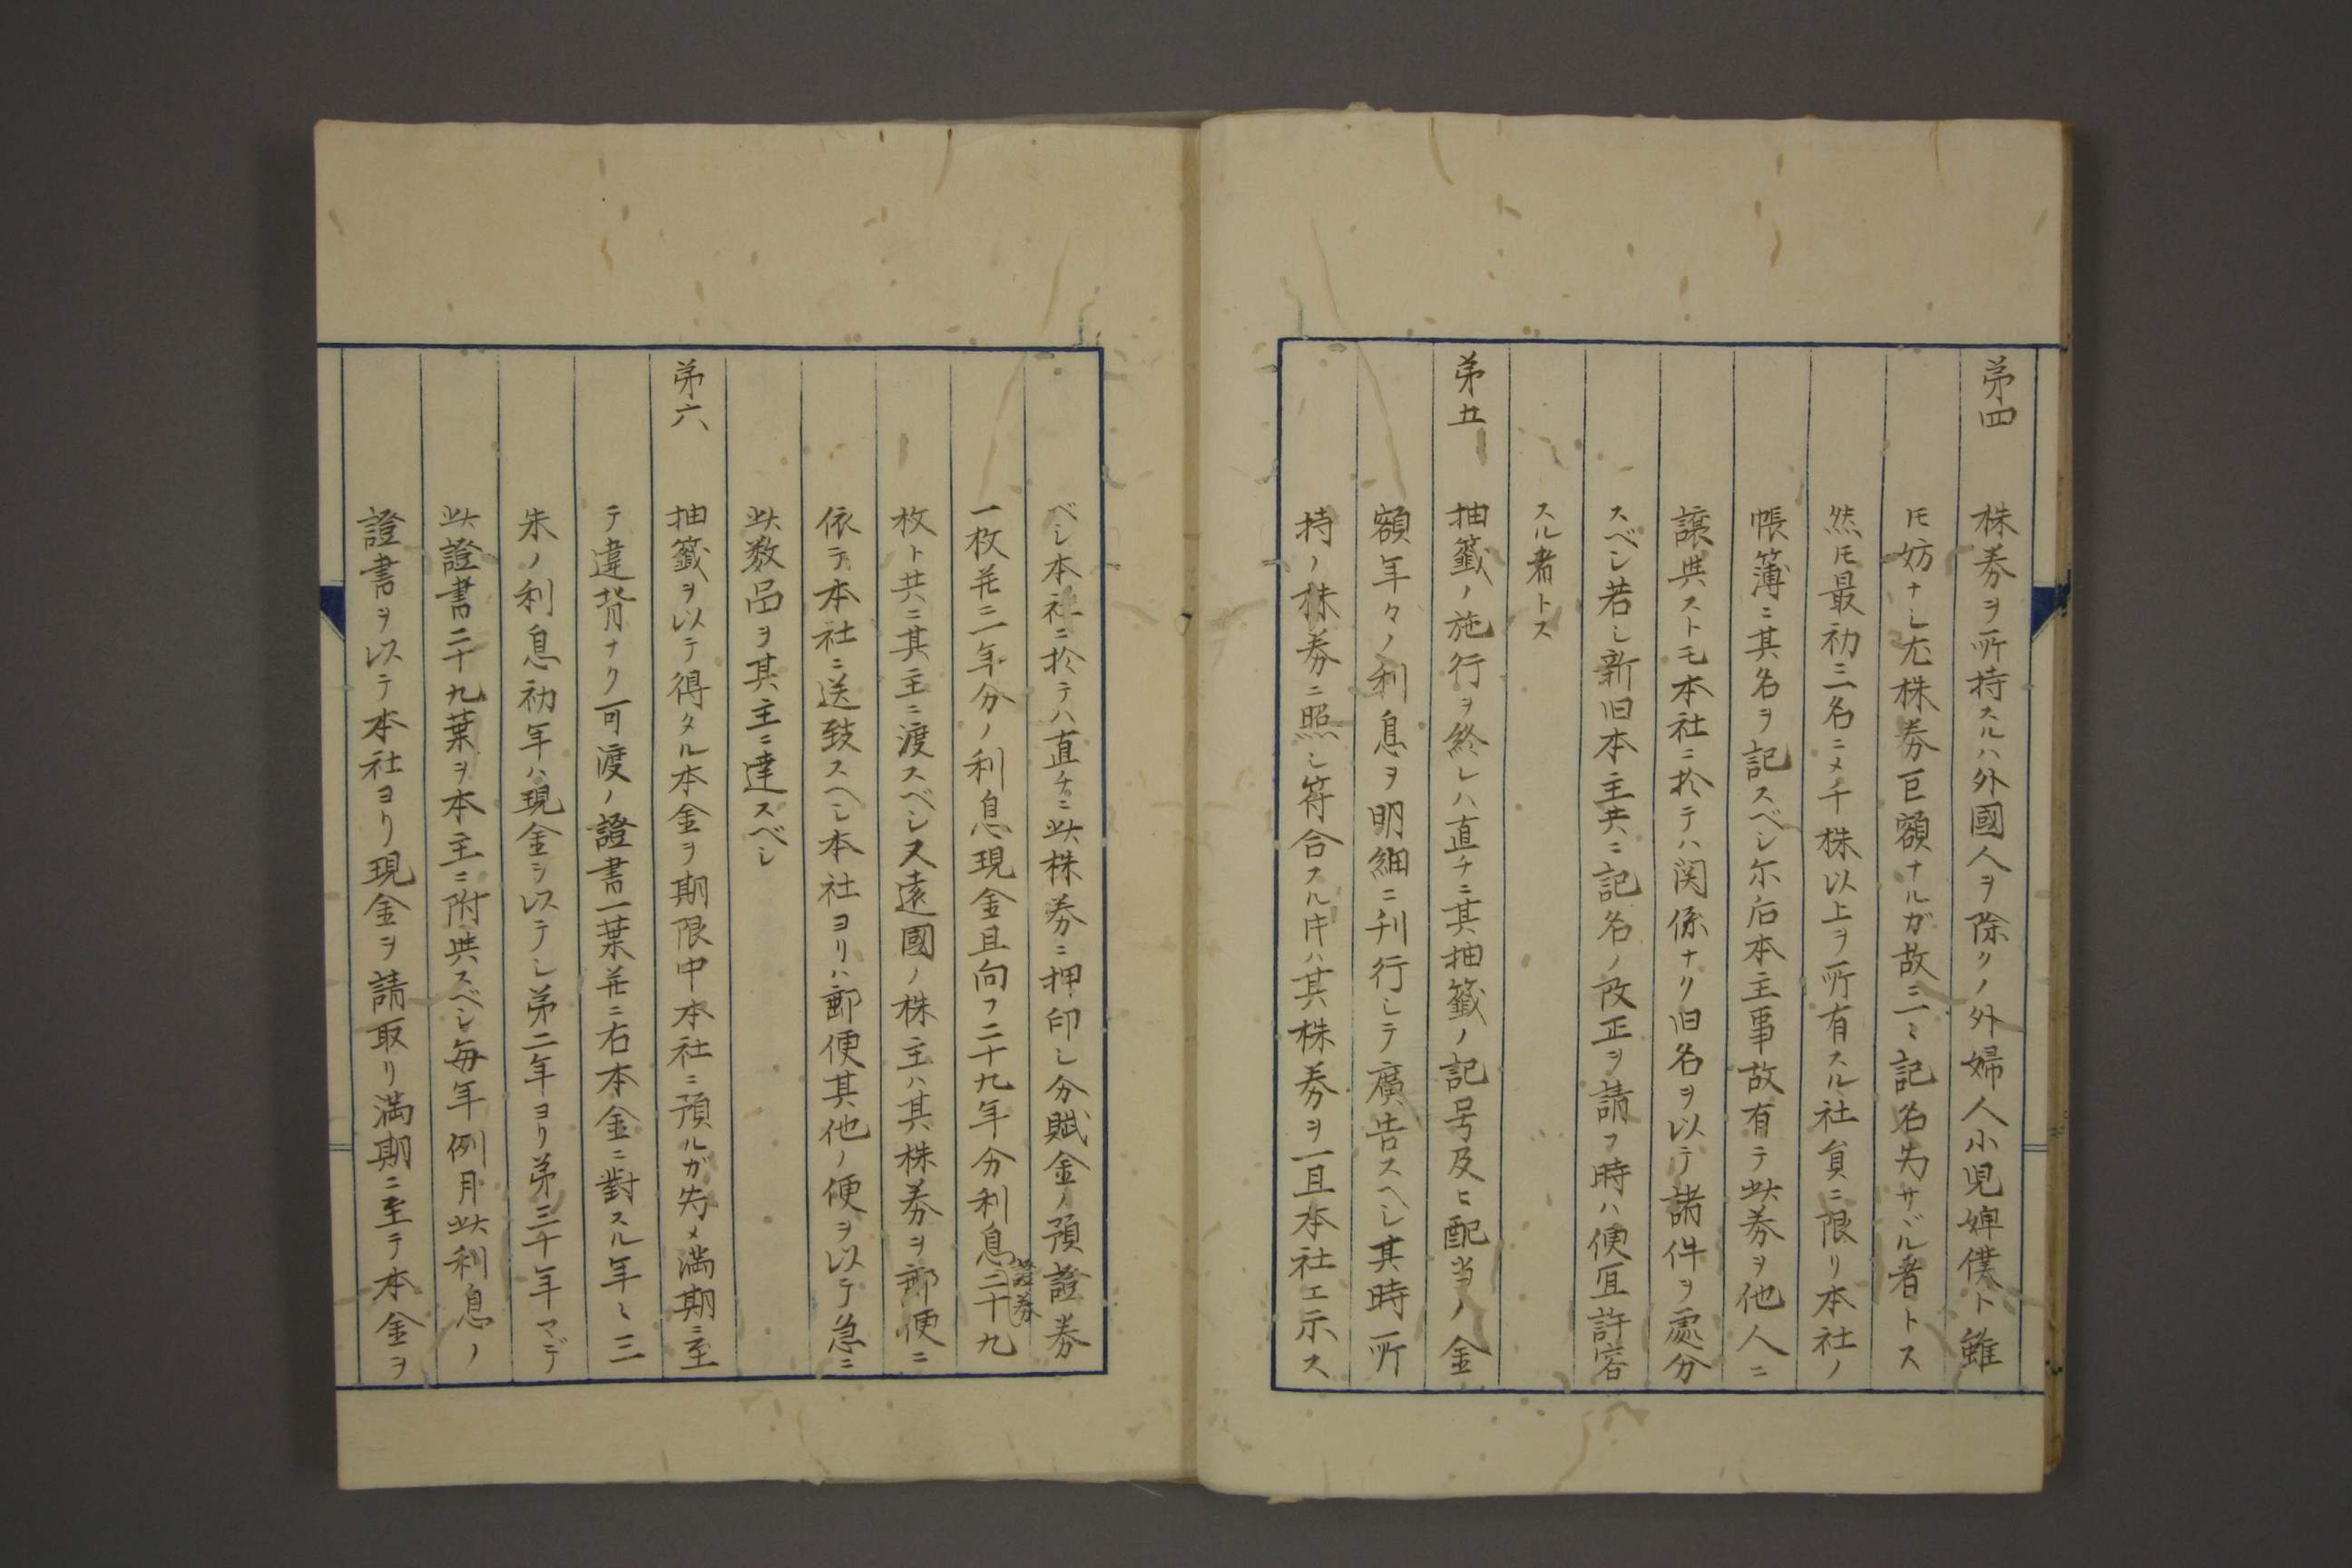 第四　株券ヲ所持スルハ外國人ヲ除クノ外婦人小児婢僕ト雖
𪜈妨ナシ尤株券巨額ナルガ故ニ一々記名為サヾル者トス
然𪜈最初三名ニメ千株以上ヲ所有スル社員ニ限リ本社ノ
帳簿ニ其名ヲ記スベシ尓后本主事故有テ此券ヲ他人ニ
譲與ストモ本社ニ於テハ関係ナク旧名ヲ以テ諸件ヲ處分
スベシ若シ新旧本主共ニ記名ノ改正ヲ請フ時ハ便宜許容
スル者トス
第五　抽籤ノ施行ヲ終レハ直チニ其抽籤ノ記号及ヒ配当ノ金
額年々ノ利息ヲ明細ニ刊行シテ廣告スヘシ其時所
持ノ株券ニ照シ符合スル片ハ其株券ヲ一旦本社エ示ス
ベシ本社ニ於テハ直チニ此株券ニ押印シ分賦金ノ預證券
一枚并ニ一年分ノ利息現金且向フ二十九年分利息證券二十九
枚ト共ニ其主ニ渡スベシ又遠國ノ株主ハ其株券ヲ郵便ニ
依テ本社ニ送致スヘシ本社ヨリハ郵便其他ノ便ヲ以テ急ニ
此数品ヲ其主ニ達スベシ
第六　抽籤ヲ以テ得タル本金ヲ期限中本社ニ預ルガ為メ満期ニ至
テ違背ナク可渡ノ證書一葉并ニ右本金ニ對スル年々三
朱ノ利息初年ハ現金ヲ以テシ第二年ヨリ第三十年マデ
此證書二十九葉ヲ本主ニ附與スベシ毎年例月此利息ノ
證書ヲ以テ本社ヨリ現金ヲ請取リ満期ニ至テ本金ヲ